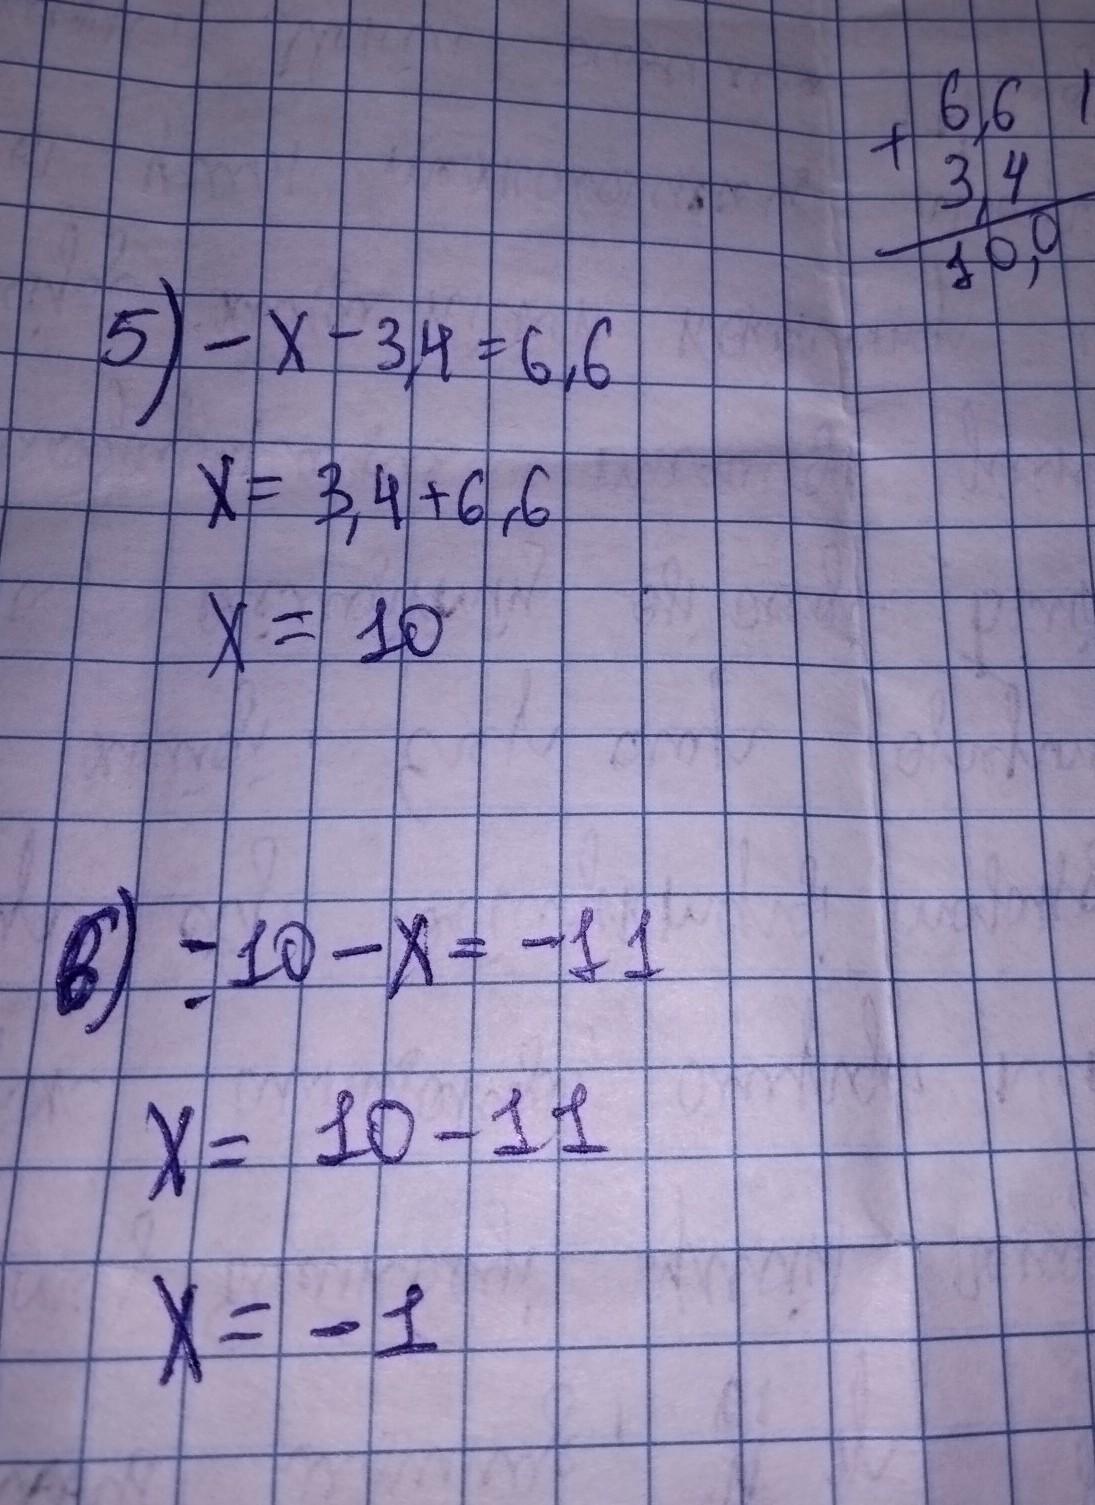 6,6
+
3,4
10,0
5) -x-3,4=6,6
x= 3,4+6,6
x= 10
6) -10-x= -11
x= 10-11
x= -1